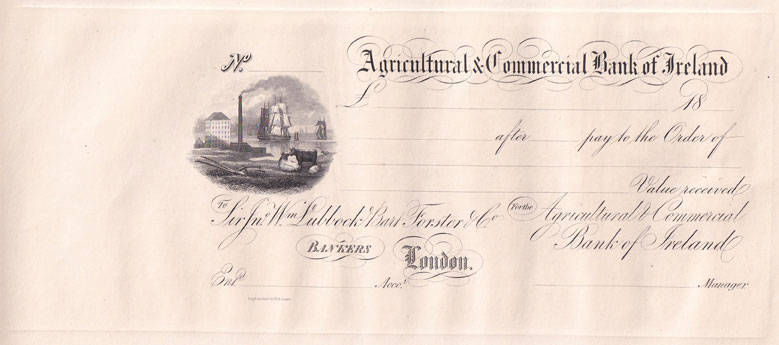 No
Agricultural & Commercial Bank of Ireland
£ 18
after pay to the Order of
Value received
To Sir Jno. Wm. Lubbock Bart. Forster & Co. For the Agricultural & Commercial
Bank of Ireland
BANKERS London.
Entd. Acco.t Manager